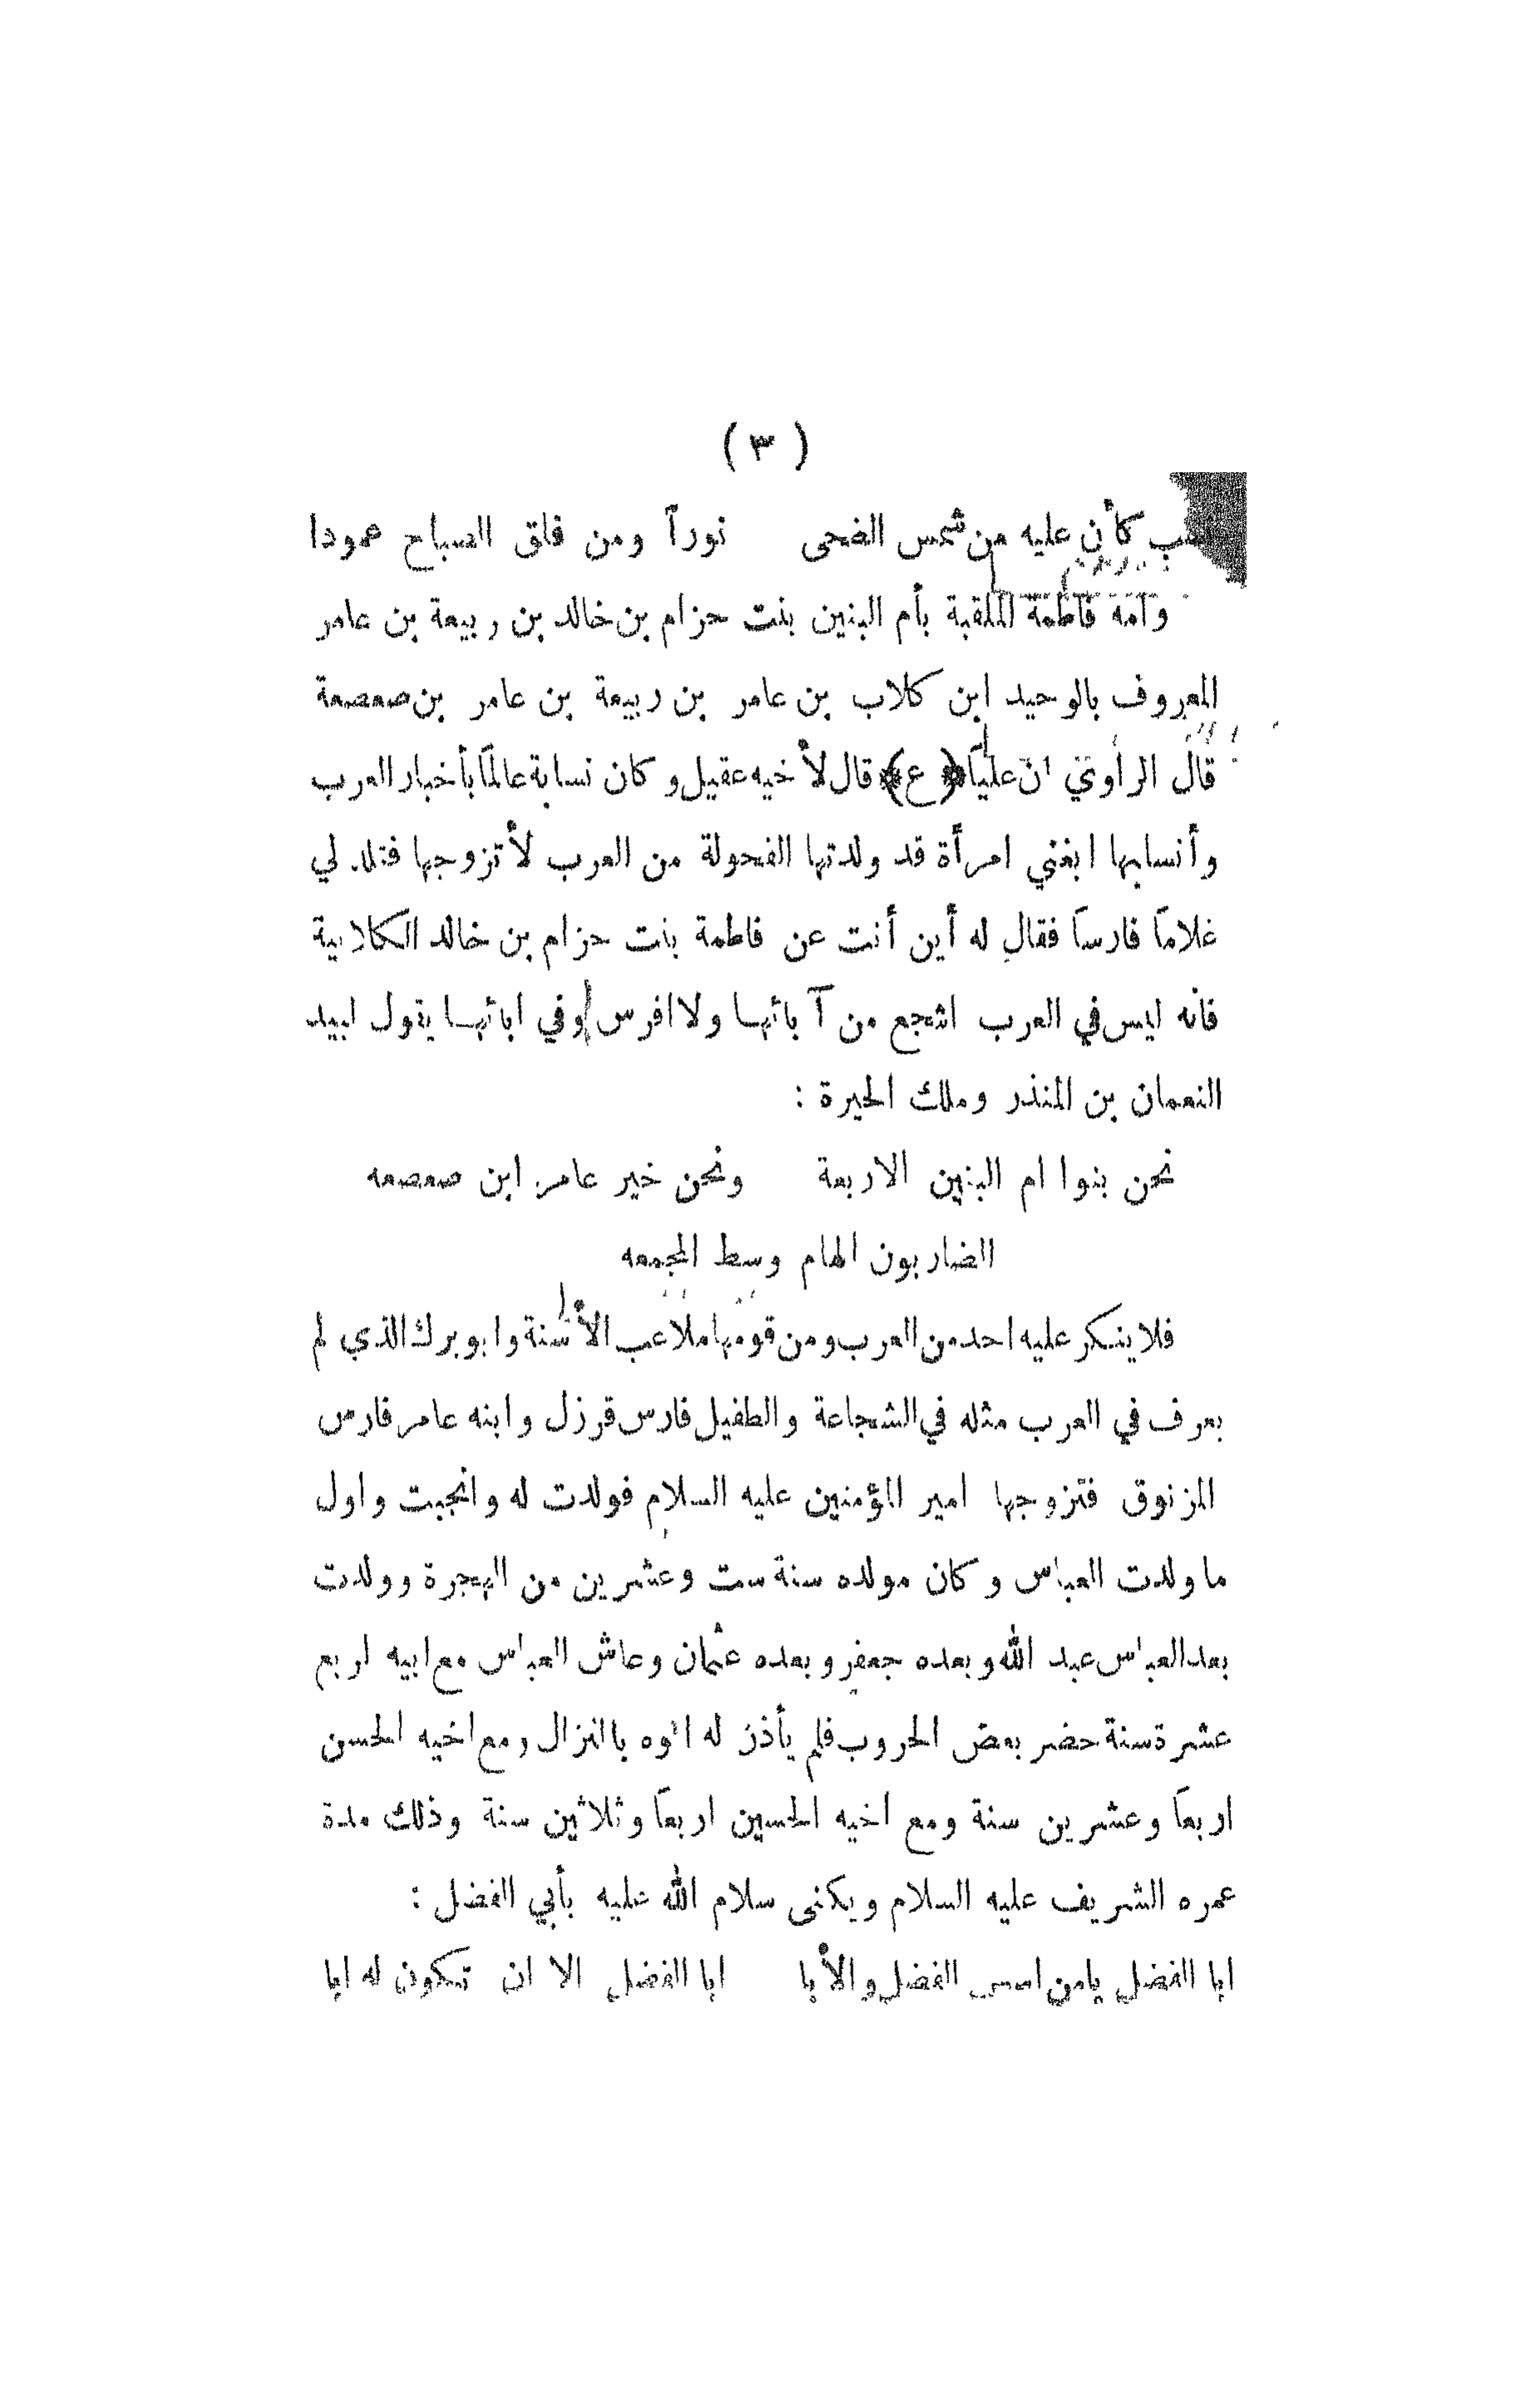 ( ٣ )
كأن عليه من شمس الضحى نوراً ومن فلق الصباح عمودا
وامه فاطمة الملقبة بأم البنين بنت حزام بن خالد بن ربيعة بن عامر
المعروف بالوحيد ابن كلاب بن عامر بن ربيعة بن عامر بن صعصعة
قال الراوي ان علياً ﴿ ع ﴾ قال لأخيه عقيل وكان نسابة عالماً بأخبار العرب
وأنسابها ابغني امرأة قد ولدتها الفحولة من العرب لأتزوجها فتلد لي
غلاماً فارساً فقال له أين أنت عن فاطمة بنت حزام بن خالد الكلابية
فانه ليس في العرب اشجع من آبائها ولا افرس وفي ابائها يقول لبيد
النعمان بن المنذر وملك الحيرة :
نحن بنوا ام البنين الاربعة ونحن خير عامر ابن صعصعه
الضاربون الهام وسط المجمعه
فلا ينكر عليه احد من العرب ومن قومها ملاعب الأسنة وابو برك الذي لم
يعرف في العرب مثله في الشجاعة والطفيل فارس قرزل وابنه عامر فارس
المزنوق فتزوجها امير المؤمنين عليه السلام فولدت له وانجبت واول
ما ولدت العباس وكان مولده سنة ست وعشرين من الهجرة وولدت
بعد العباس عبد الله وبعده جعفر وبعده عثمان وعاش العباس مع ابيه اربع
عشرة سنة حضر بعض الحروب فلم يأذن له ابوه بالنزال ومع اخيه الحسن
اربعاً وعشرين سنة ومع اخيه الحسين اربعاً وثلاثين سنة وذلك مدة
عمره الشريف عليه السلام ويكنى سلام الله عليه بأبي الفضل :
ابا الفضل يا من اسس الفضل والأبا ابا الفضل الا ان تكون له ابا